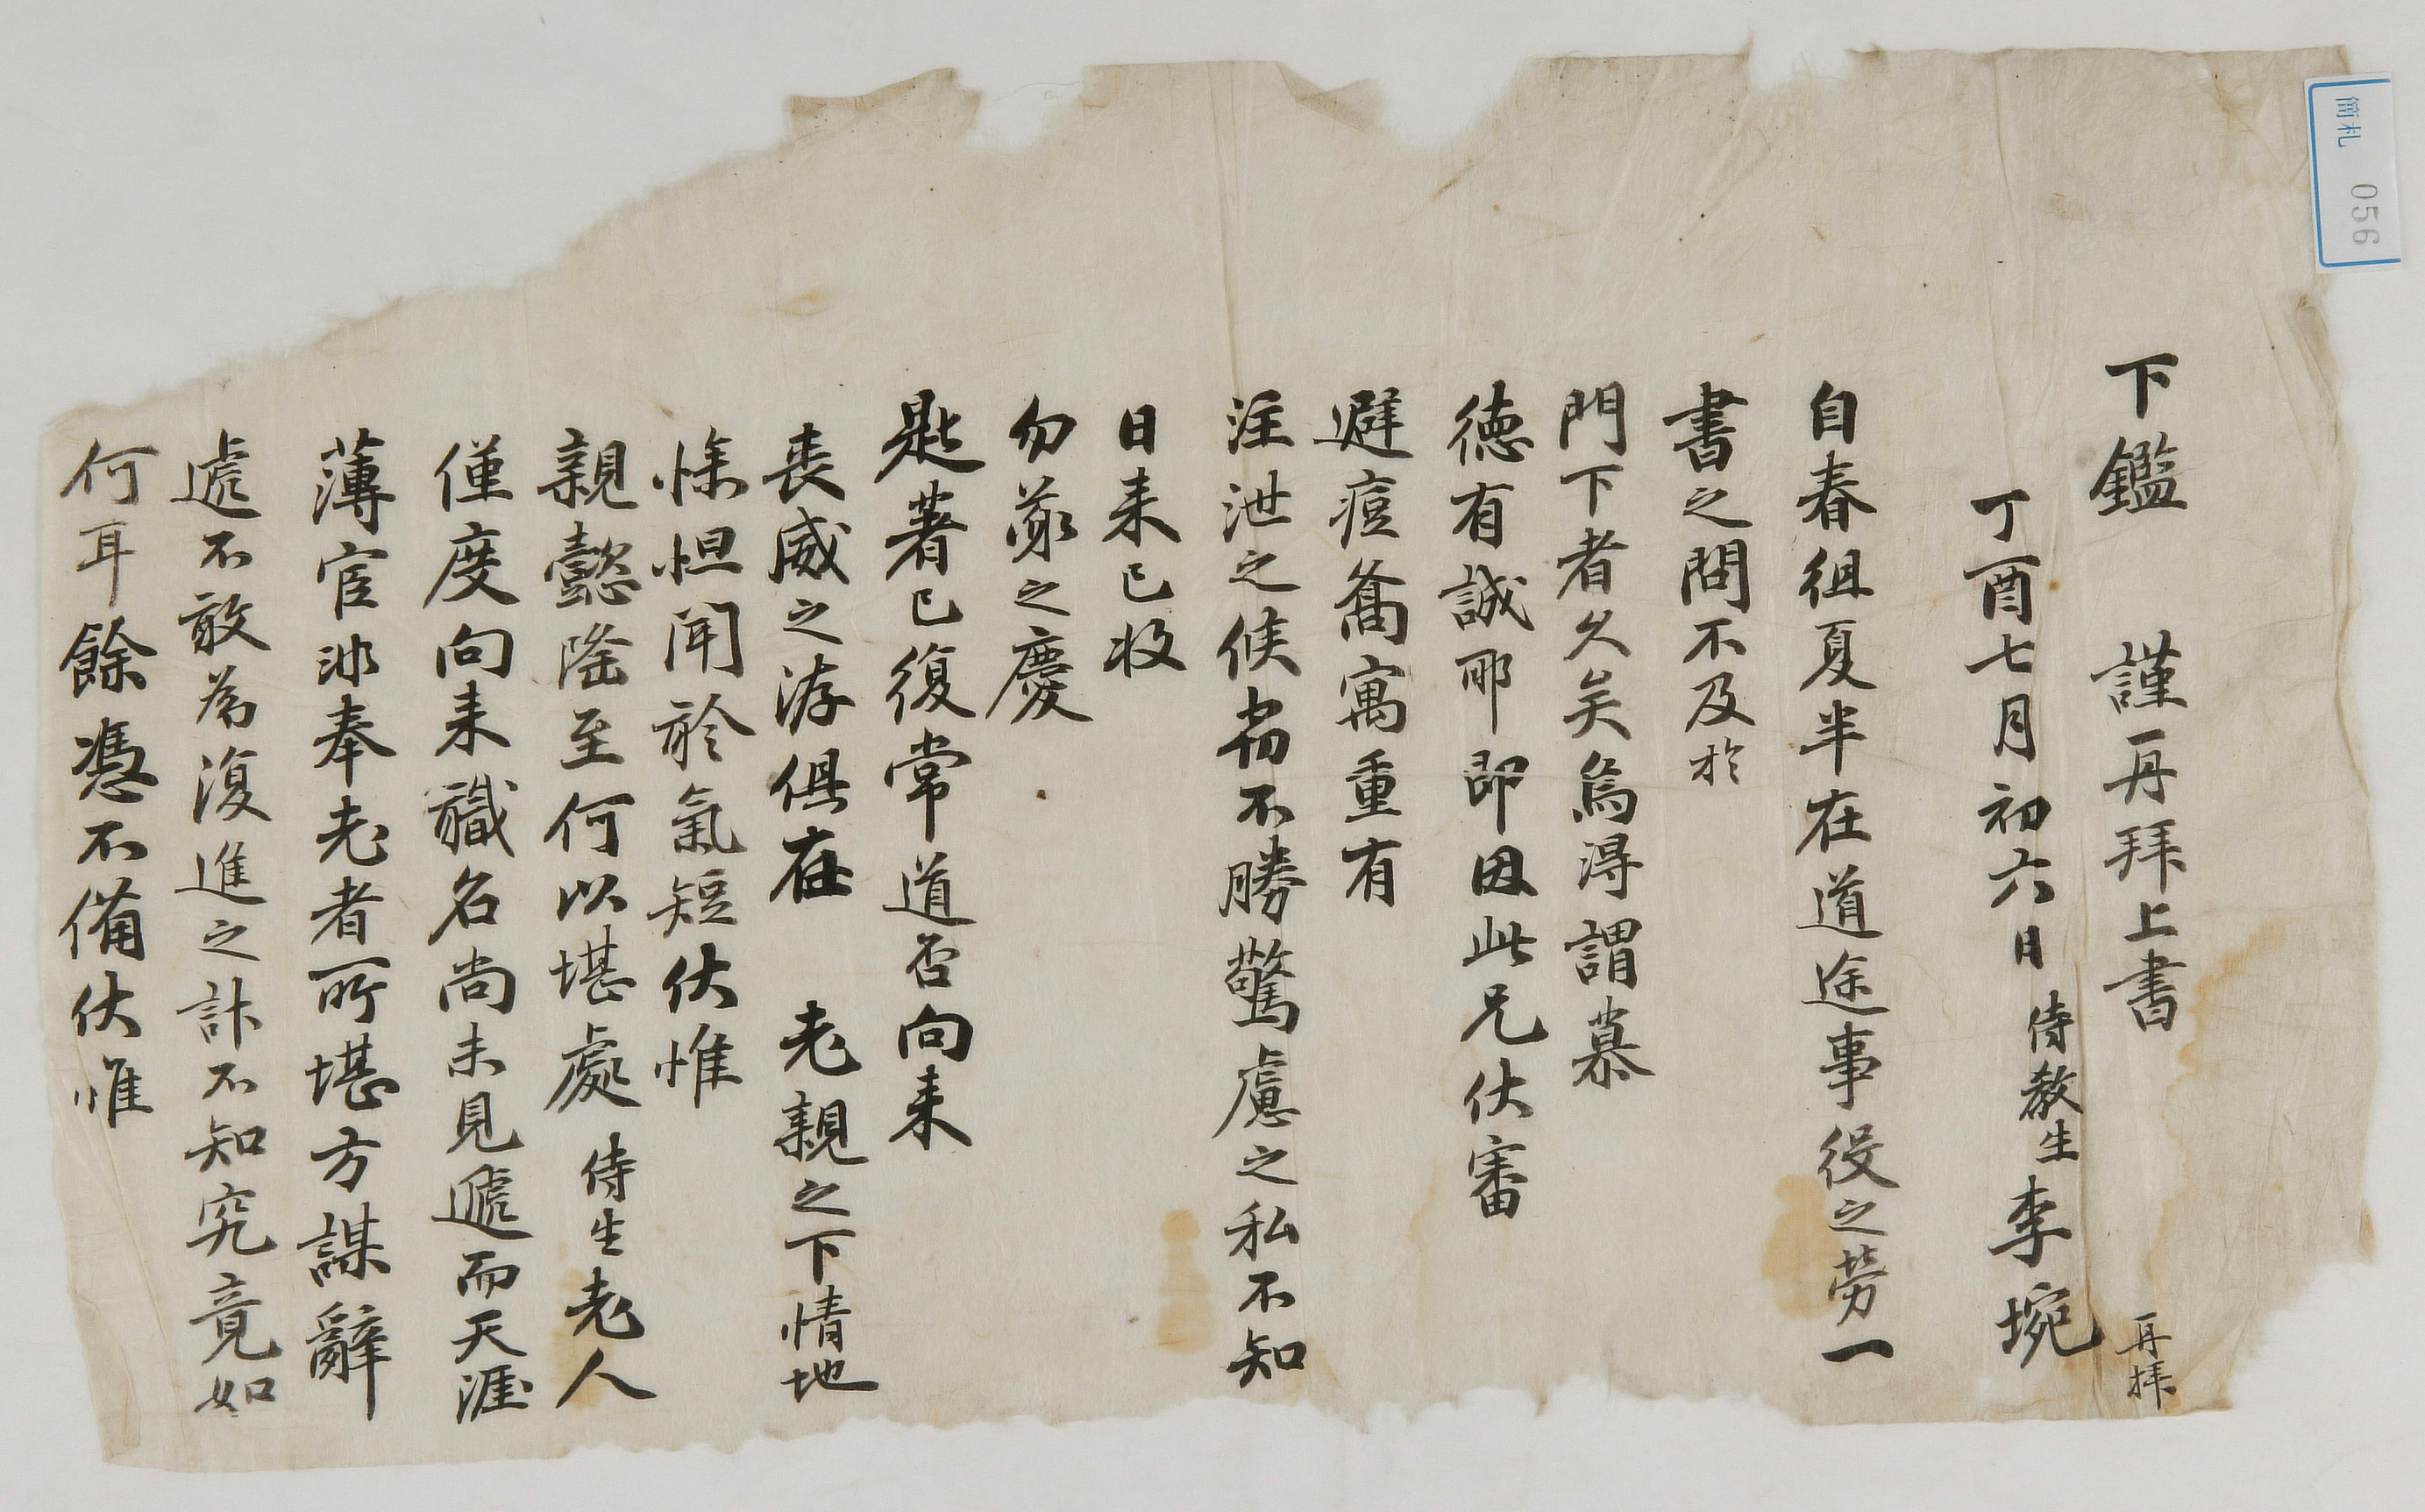 簡札 056
下鑑 謹再拜上書
再拜
丁酉七月初六日 侍教生李埦
自春徂夏半在道途事役之勞一
書之問不及於
門下者久矣烏得謂慕
德有誠耶卽因此兄伏審
避痘喬寓重有
注泄之候 不勝驚慮之私不知
日來已收
勿藥之慶
匙著已復常道否向來
喪威之 俱在 老親之下情地
悇怛聞於氣短伏惟
親懿隆至何以堪處 侍生老人
僅度向來職名尚未見遞而天涯
薄宦 奉老者所堪方謀辭
遞不敢爲復進之計不知究竟如
何耳餘憑不備伏惟